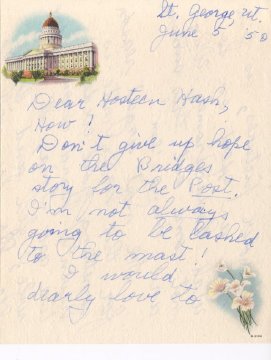 St. George, ut.
June 5, '50
Dear Hosteen Nash,
How!
Don't give up hope
on the Bridges
story for the Post.
I'm not always
going to be lashed
to the mast!
I would
dearly love to